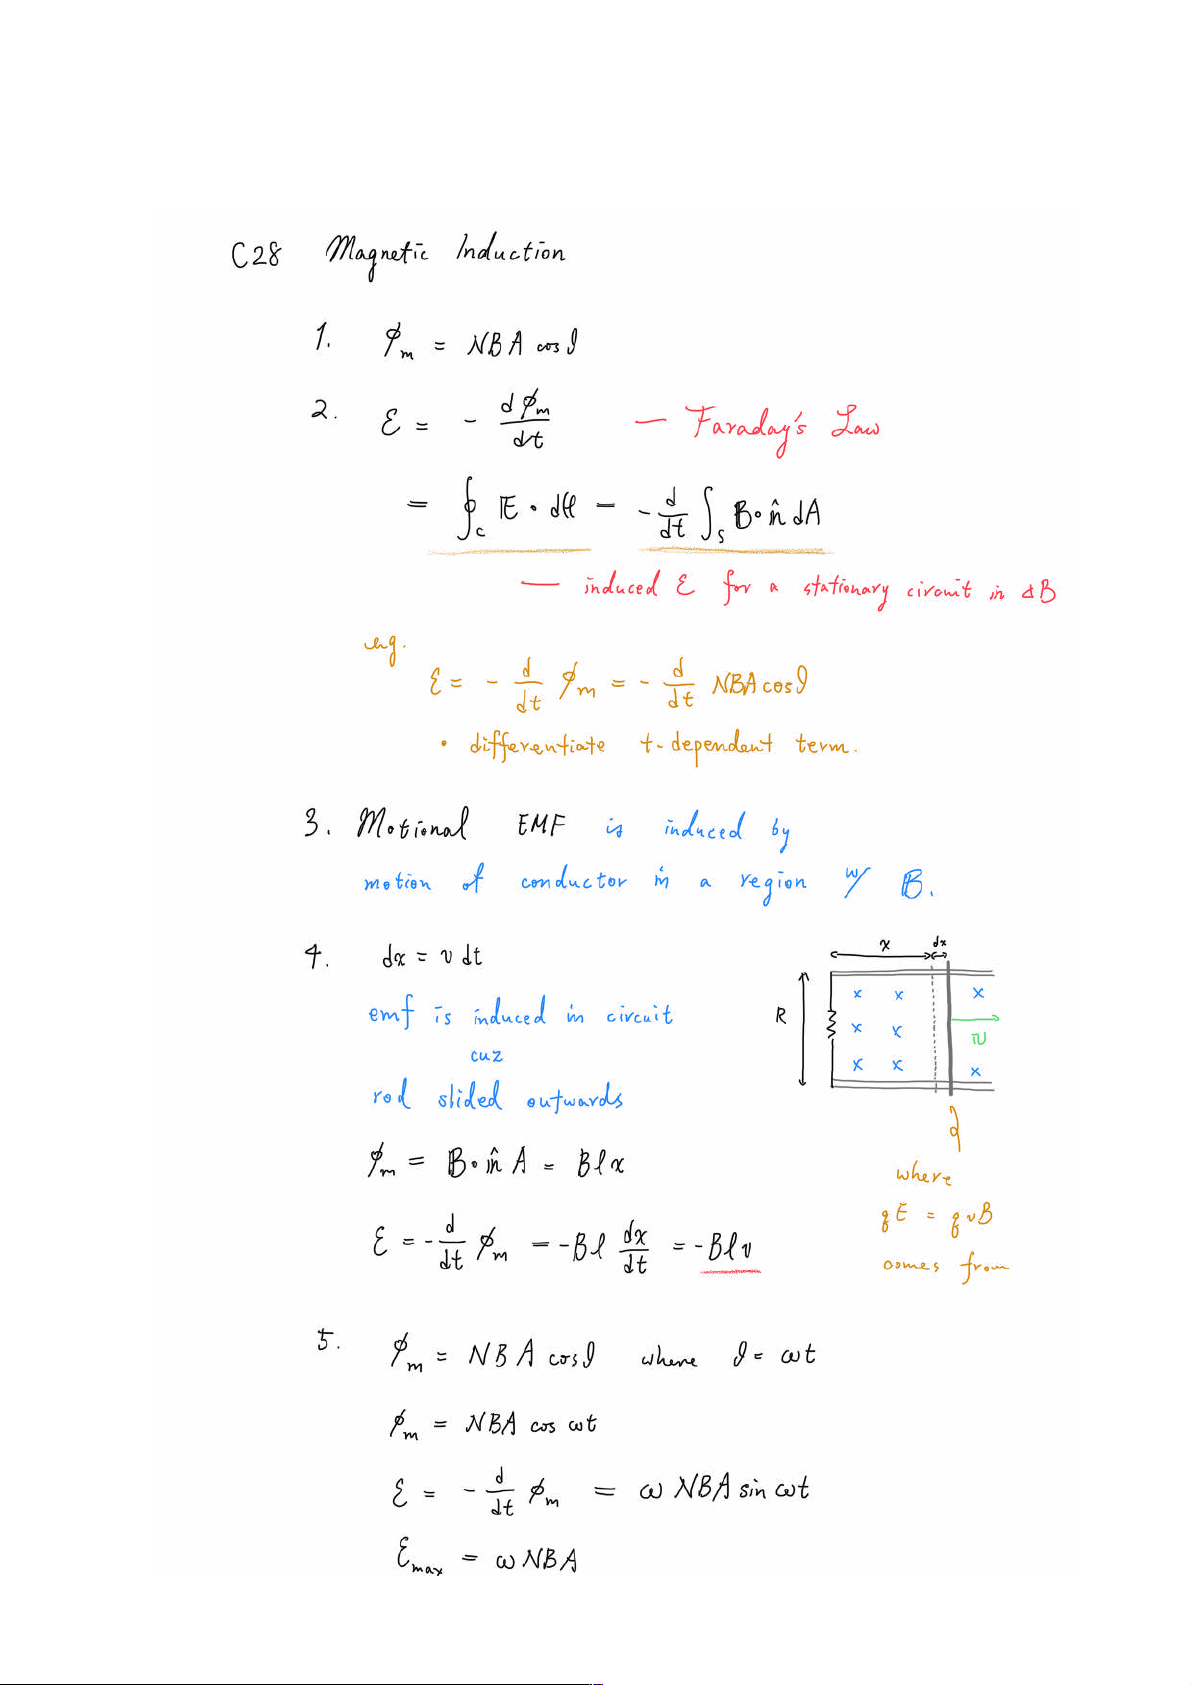 C28 Magnetic Induction
1. ϕₘ = NBA cosϑ
2. ℰ = - dϕₘ/dt — Faraday's Law
= ∮_c 𝔼 • dℓ = - d/dt ∫_S B • n̂ dA
— induced ℰ for a stationary circuit in ΔB
eg.
ℰ = - d/dt ϕₘ = - d/dt NBA cosϑ
• differentiate t-dependent term.
3. Motional EMF is induced by
motion of conductor in a region w/ B.
4. dx = v dt
x dx
emf is induced in circuit
R
x x x
x x v
x x x
cuz
rod slided outwards
ϕₘ = B • n̂ A = Bℓx
where
qE = qvB
comes from
ℰ = - d/dt ϕₘ = -Bℓ dx/dt = -Bℓv
5. ϕₘ = NBA cosϑ where ϑ = ωt
ϕₘ = NBA cos ωt
ℰ = - d/dt ϕₘ = ω NBA sin ωt
ℰmax = ω NBA